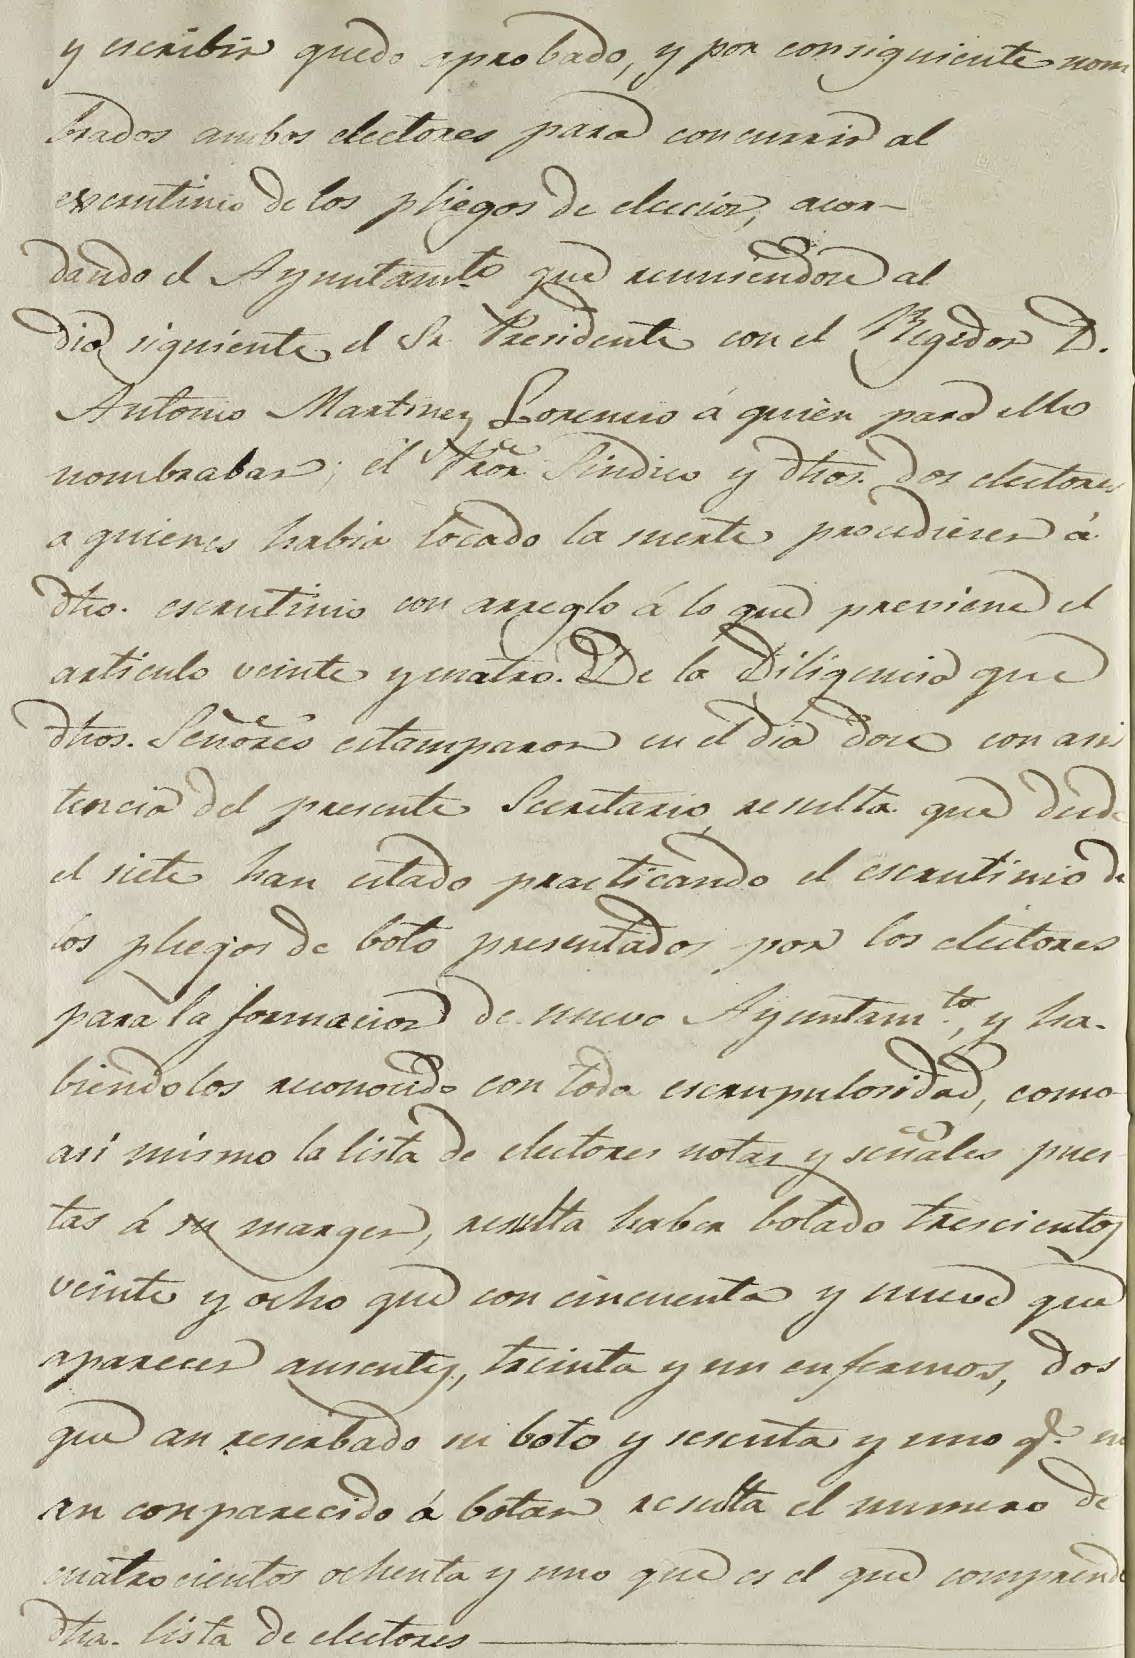 y escribir quedo aprobado, y por consiguiente nom
brados ambos electores para concurrir al
escrutinio de los pliegos de eleccion, acor-
dando el Ayuntam.to que reuniendose al
dia siguiente el Sr. Presidente con el Regidor D.
Antonio Martinez Lorencio á quien para ello
nombraban; el Pror. Sindico y dhos. dos electores
a quienes habia tocado la suerte procedieren á
dho. escrutinio con arreglo á lo que previene el
articulo veinte y cuatro. De la Diligencia que
dhos. Señores estamparon en el dia doce con asis
tencia del presente Secretario, resulta que desde
el siete han estado practicando el escrutinio de
los pliegos de boto presentados por los electores
para la formacion de nuevo Ayuntam.to, y ha-
biendolos reconocido con toda escrupulosidad, como
asi mismo la lista de electores notas y señales pues-
tas á su margen, resulta haber botado trescientos
veinte y ocho que con cincuenta y nueve que
aparecen ausentes, treinta y un enfermos, dos
que an reserbado su boto y sesenta y uno q.e no
an conparecido á botar resulta el numero de
cuatrocientos ochenta y uno que es el que comprende
dha. lista de electores